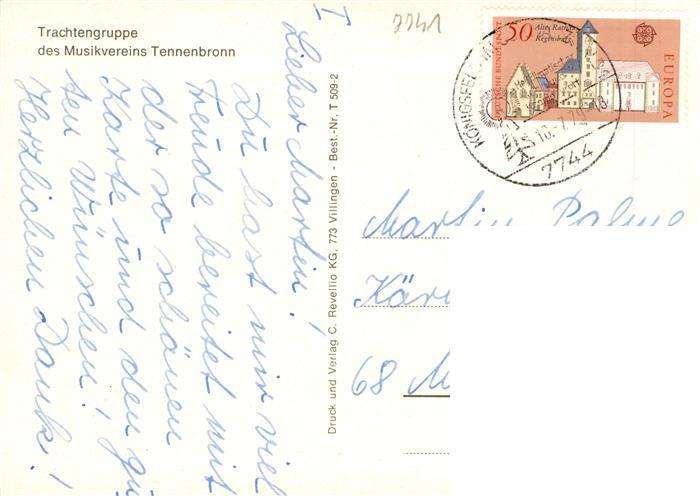 Trachtengruppe
des Musikvereins Tennenbronn
I
Lieber Martin!
Du hast mir viel
Freude bereitet mit
der so schönen
Karte und den gu
ten Wünschen!
Herzlichen Dank!
Druck und Verlag C. Revellio KG, 773 Villingen - Best.-Nr. T 509-2
7741
50
Altes Rathaus
Regensburg
DEUTSCHE BUNDESPOST
EUROPA
7744
Martin Palm
68 M